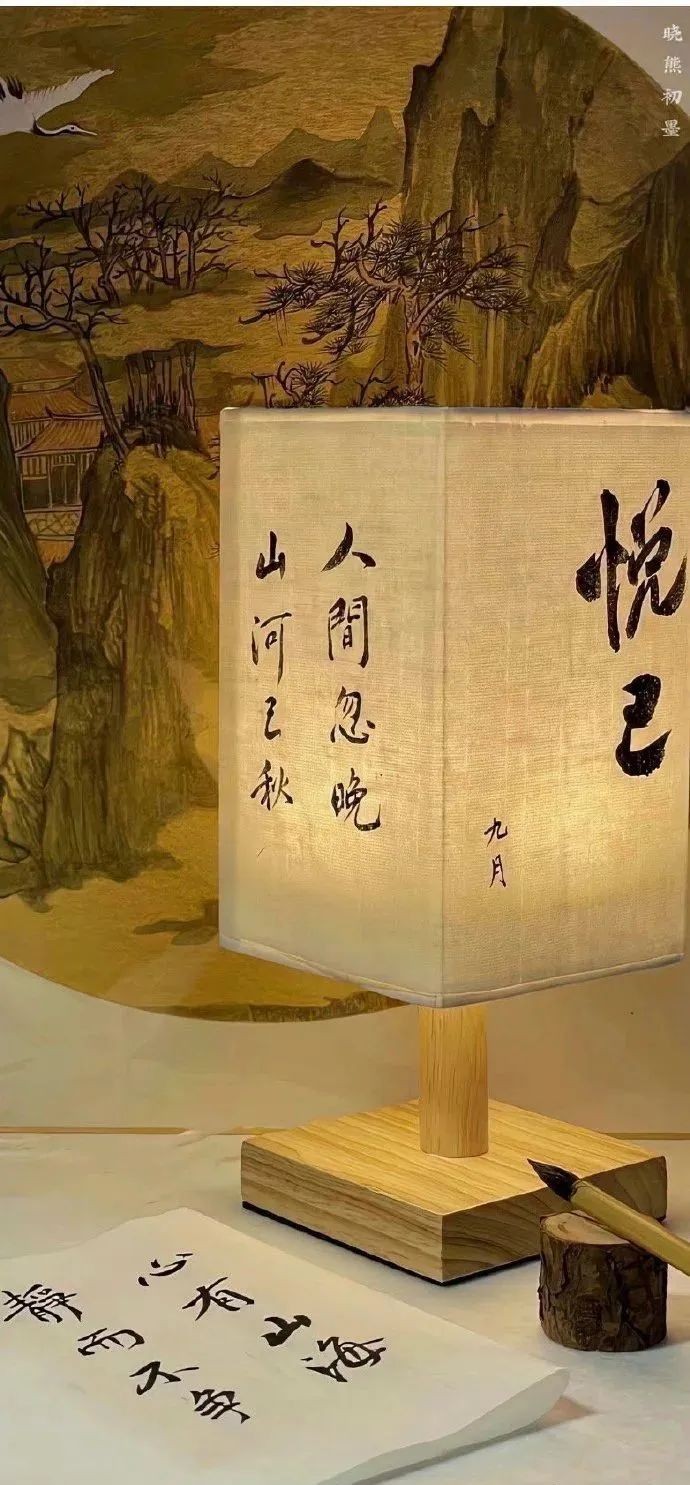 晓熊初墨
悦己
九月
人間忽晚
山河已秋
心有山海
靜而不爭